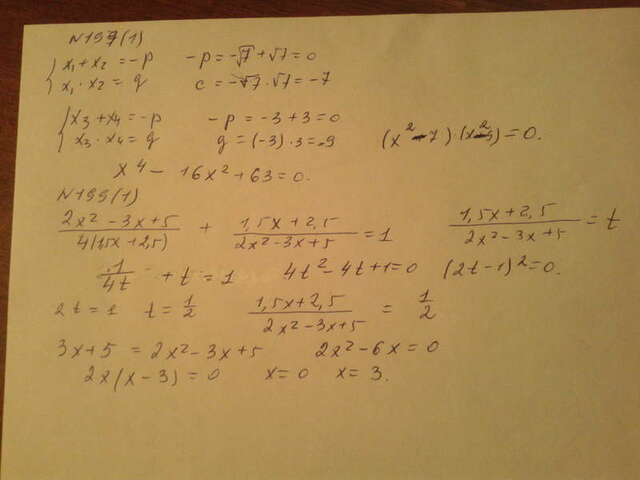 N197(1)
x₁+x₂=-p -p=-√7+√7=0
x₁·x₂=q c=-√7·√7=-7
x₃+x₄=-p -p=-3+3=0
x₃·x₄=q q=(-3)·3=-9 (x²-7)·(x²-9)=0.
x⁴-16x²+63=0.
N199(1)
(2x²-3x+5)/(4(1,5x+2,5)) + (1,5x+2,5)/(2x²-3x+5)=1 (1,5x+2,5)/(2x²-3x+5)=t
1/(4t)+t=1 4t²-4t+1=0 (2t-1)²=0.
2t=1 t=1/2 (1,5x+2,5)/(2x²-3x+5)=1/2
3x+5=2x²-3x+5 2x²-6x=0
2x(x-3)=0 x=0 x=3.